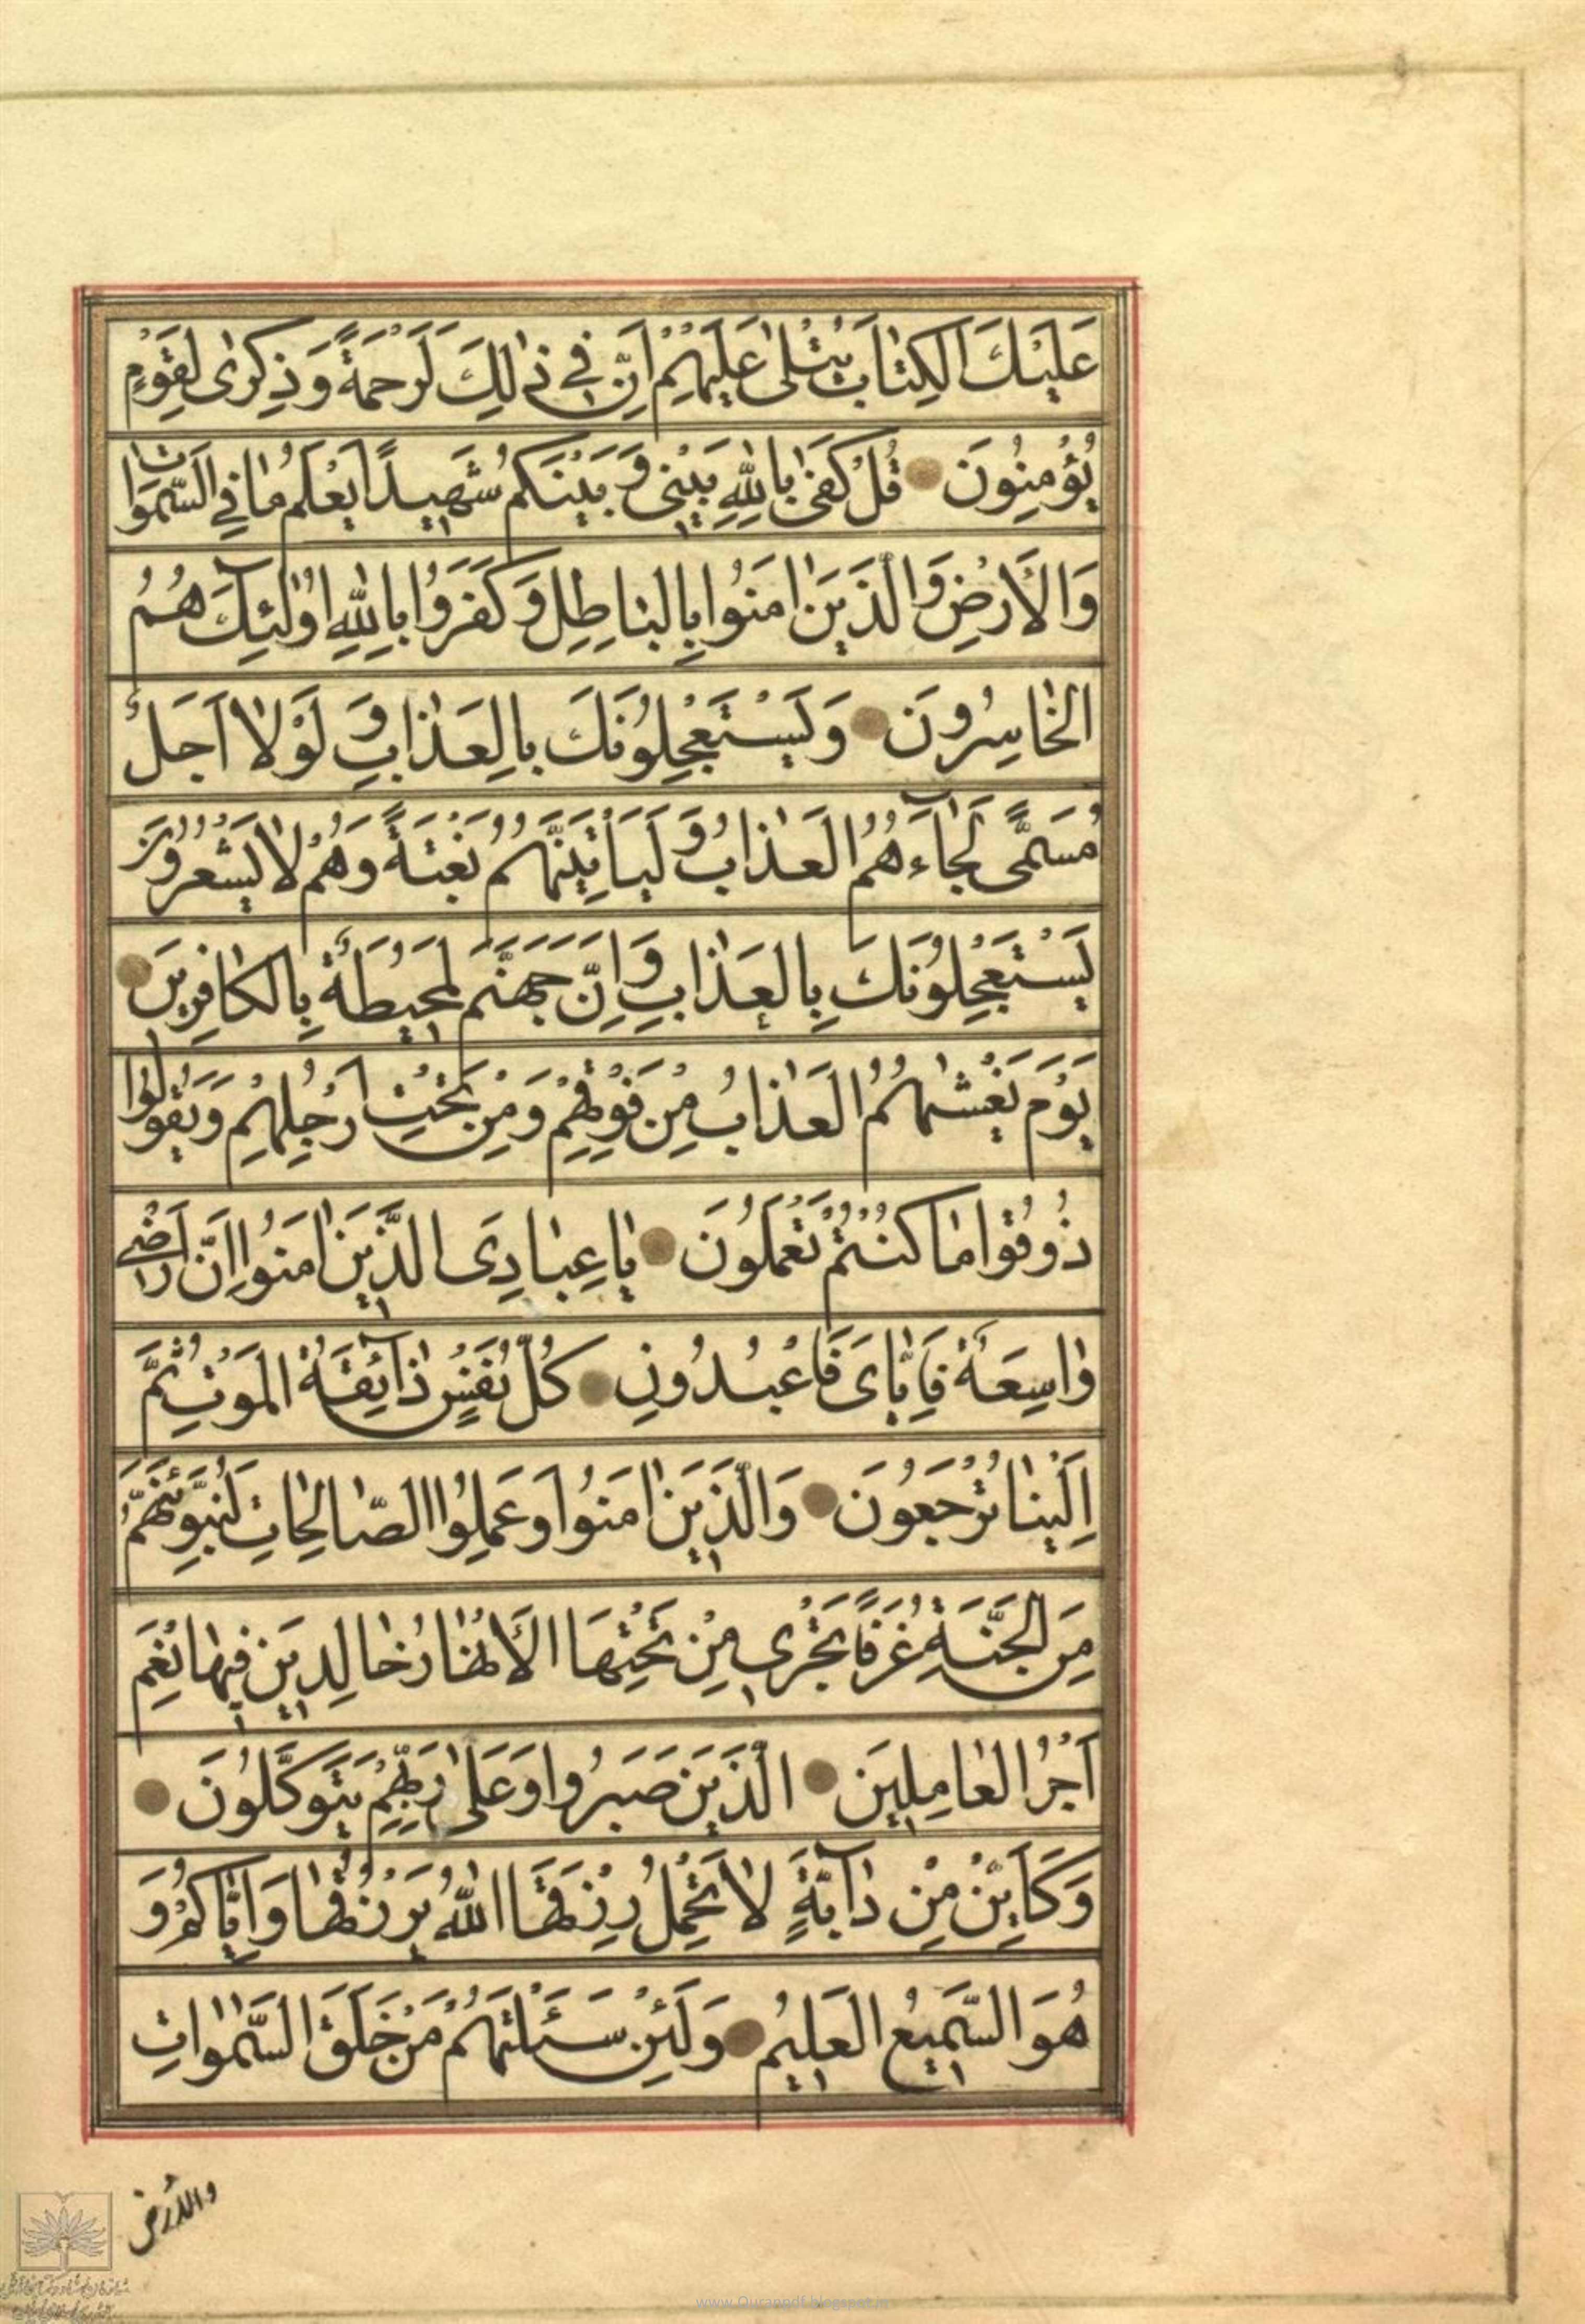 عَلَيْكَ الْكِتٰابَ يُتْلىٰ عَلَيْهِمْ اِنَّ فِي ذٰلِكَ لَرَحْمَةً وَذِكْرىٰ لِقَوْمٍ
يُؤْمِنُونَ قُلْ كَفىٰ بِاللّٰهِ بَيْنِي وَبَيْنَكُمْ شَهِيداً يَعْلَمُ مٰا فِي السَّمٰوٰاتِ
وَالْاَرْضِ وَالَّذِينَ اٰمَنُوا بِالْبٰاطِلِ وَكَفَرُوا بِاللّٰهِ اُولٰٓئِكَ هُمُ
الْخٰاسِرُونَ وَيَسْتَعْجِلُونَكَ بِالْعَذٰابِ وَلَوْلٰا اَجَلٌ
مُسَمًّى لَجٰٓاءَهُمُ الْعَذٰابُ وَلَيَأْتِيَنَّهُمْ بَغْتَةً وَهُمْ لٰا يَشْعُرُونَ
يَسْتَعْجِلُونَكَ بِالْعَذٰابِ وَاِنَّ جَهَنَّمَ لَمُحِيطَةٌ بِالْكٰافِرِينَ
يَوْمَ يَغْشٰيهُمُ الْعَذٰابُ مِنْ فَوْقِهِمْ وَمِنْ تَحْتِ اَرْجُلِهِمْ وَيَقُولُوا
ذُوقُوا مٰا كُنْتُمْ تَعْمَلُونَ يٰا عِبٰادِيَ الَّذِينَ اٰمَنُوا اِنَّ اَرْضِي
وٰاسِعَةٌ فَاِيّٰايَ فَاعْبُدُونِ كُلُّ نَفْسٍ ذٰٓائِقَةُ الْمَوْتِ ثُمَّ
اِلَيْنٰا تُرْجَعُونَ وَالَّذِينَ اٰمَنُوا وَعَمِلُوا الصّٰالِحٰاتِ لَنُبَوِّئَنَّهُمْ
مِنَ الْجَنَّةِ غُرَفاً تَجْرِي مِنْ تَحْتِهَا الْاَنْهٰارُ خٰالِدِينَ فِيهٰا نِعْمَ
اَجْرُ الْعٰامِلِينَ الَّذِينَ صَبَرُوا وَعَلىٰ رَبِّهِمْ يَتَوَكَّلُونَ
وَكَاَيِّنْ مِنْ دٰٓابَّةٍ لٰا تَحْمِلُ رِزْقَهَا اللّٰهُ يَرْزُقُهٰا وَاِيّٰاكُمْ وَ
هُوَ السَّمِيعُ الْعَلِيمُ وَلَئِنْ سَئَلْتَهُمْ مَنْ خَلَقَ السَّمٰوٰاتِ
والارض
www.Quranpdf.blogspot.in